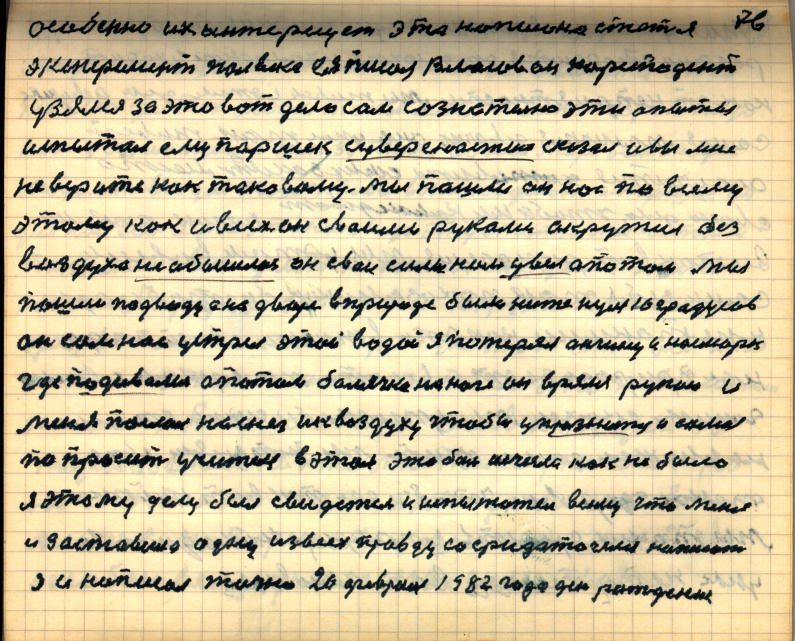 особенно их интересует эта написана статья 76
эксперимент человека я писал Власов он кореподент
узялся за это вот дело сам сознательно эти опыты
испытал ему паршек суверенастию сказал и вы мне
не верите как таковому. мы пашли он нас по всему
этому как и всех он своими руками окружил без
воздуха не абошлось он свои сили нам увел а потом мы
пошли подводу а на дваре в природе было ниже нуля 10 градусов
он сам нас устрел этой водой я потерял ангину и насморк
где подивались а потом балячка на ноге он врял рукою и
меня послал на снег их воздуху чтобы и сам
попросит учителя в этом это бал исчезла как не было
я этому делу был свидетель и испытател всему что меня
и заставило одну из всех правду написат
я и написал точно 26 февраля 1982 года ден рождение